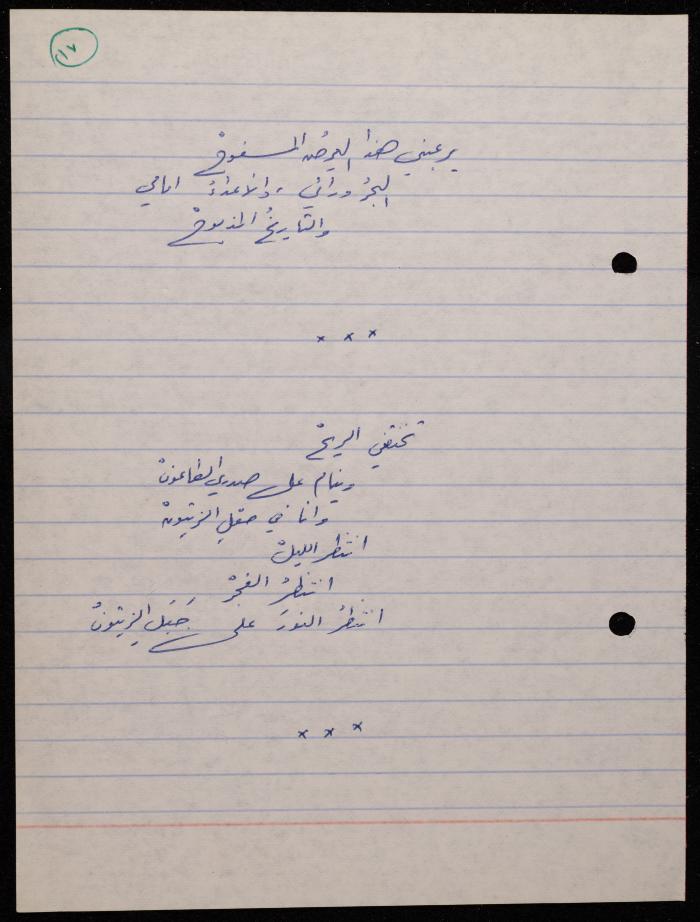 ١٧
يرعبني هذا العرضُ المسفوحْ
البحرُ ورائي، والأعداءُ امامي
والتاريخُ المذبوحْ
× × ×
تختفي الريحْ
وينام على صدري الطاعونْ
وانا في حقلِ الزيتونْ
انتظر الليلْ
انتظرُ الفجرْ
انتظرُ النورَ على جَبَلِ الزيتونْ
× × ×